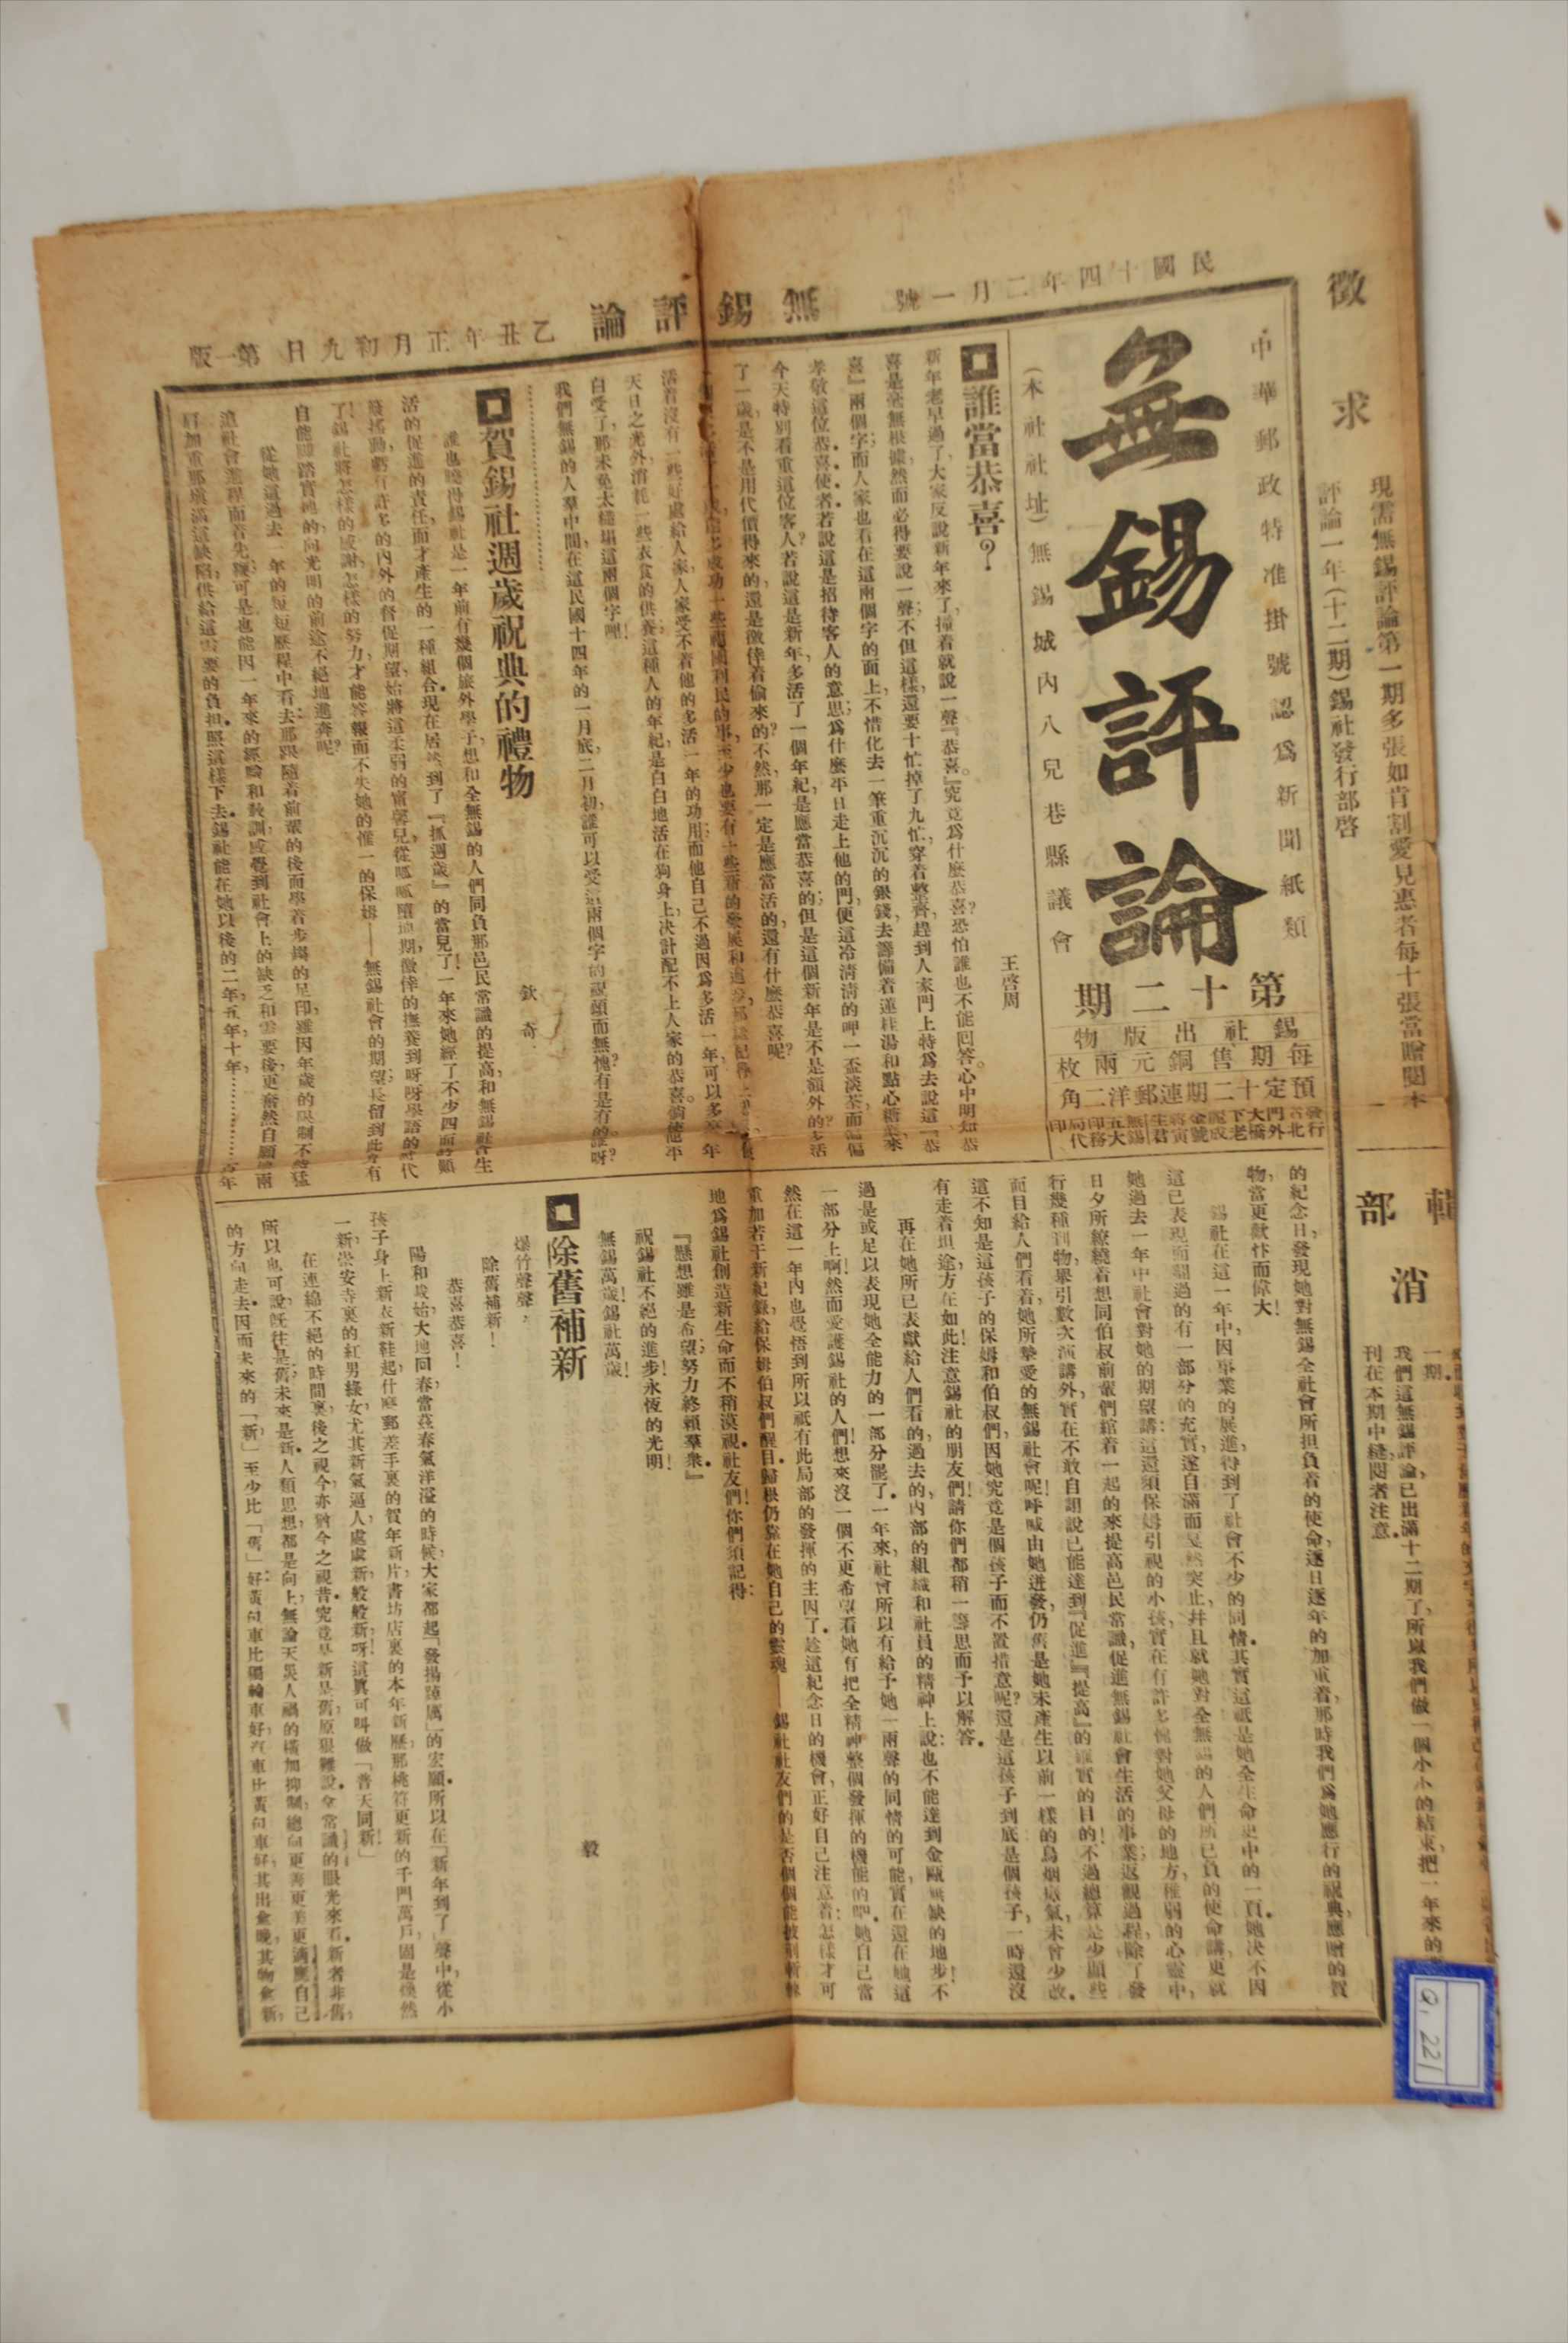 民國十四年二月一號
無錫評論
乙丑年正月初九日
第一版
中華郵政特准掛號認爲新聞紙類
無錫評論
第十二期
錫社出版物
每期售銅元兩枚
預定十二期連郵洋二角
(本社社址)無錫城內八兒巷縣議會
誰當恭喜?
王啓周
新年老早過了,大家反說新年來了,撞着就說一聲『恭喜。』究竟爲什麼恭喜?恐怕誰也不能回答。心中明知恭
喜是毫無根據,然而必得要說一聲;不但這樣,還要十忙掉了九忙,穿着整齊,趕到人家門上特爲去說這『恭
喜』兩個字;而人家也看在這兩個字的面上,不惜化去一筆重沉沉的銀錢,去籌備着蓮桂湯和點心糖菓來
孝敬這位恭喜使者。若說這是招待客人的意思;爲什麼平日走上他的門,便這冷清清的呷一盃淡茶,而偏偏
今天特別看重這位客人?若說這是新年,多活了一個年紀,是應當恭喜的;但是這個新年是不是額外的?多活
了一歲,是不是用代價得來的,還是僥倖着偷來的?不然,那一定是應當活的,還有什麼恭喜呢?
活着沒有一些好處給人家,人家受不着他的多活一年的功用;而他自己不過因爲多活一年,可以多
天日之光外,消耗一些衣食的供養;這種人的年紀,是白白地活在狗身上,決計配不上人家的恭喜。倘他平
白受了,那未免太糟塌這兩個字哩!
我們無錫的人羣中間,在這民國十四年的一月底,二月初,誰可以受這兩個字的祝頌而無愧?有是有的,誰呀?
賀錫社週歲祝典的禮物
欽奇
誰也曉得錫社是一年前有幾個旅外學子,想和全無錫的人們同負那邑民常識的提高,和無錫社會生
活的促進的責任,而才產生的一種組合。現在居然到了『抓週歲』的當兒了!一年來她經了不少四面
搖動,虧有許多的內外的督促期望,始將這柔弱的甯馨兒從呱呱墮地期,僥倖的撫養到呀呀學語的時代
了!錫社將怎樣的感謝,怎樣的努力,才能答報而不失她的惟一的保姆——無錫社會的期望長留到此
自能脚踏實地的,向光明的前途不絕地進奔呢?
從她這過去一年的短短歷程中看去:那跟隨着前輩的後而學着步趨的足印,雖因年歲的限制不能猛
追社會進程而着先鞭;可是也能因一年來的經驗和教訓,感覺到社會上的缺乏和需要後,更奮然自願
肩加重那塡滿這缺陷,供給這需要的負担。照這樣下去,錫社能在她以後的二年,五年,十年,…………百年
的紀念日,發現她對無錫全社會所担負着的使命,逐日逐年的加重着,那時我們爲她應行的祝典,應贈的賀
物,當更歡忭而偉大!
錫社在這一年中,因事業的展進,得到了社會不少的同情。其實這祇是她全生命史中的一頁。她决不因
這已表現而翻過的有一部分的充實,遂自滿而戛然突止。幷且就她對全無錫的人們所已負的使命講,更就
她過去一年中社會對她的期望講:這還須保姆引視的小孩,實在有許多愧對她父母的地方,稚弱的心靈中,
日夕所繚繞着想同伯叔前輩們綰着一起的來提高邑民常識,促進無錫社會生活的事業;返觀過程,除了發
行幾種刊物,舉引數次演講外,實在不敢自詡說已能達到『促進』『提高』的確實的目的!不過總算是少顯些
面目給人們看着,她所摯愛的無錫社會呢!呼喊由她迸發,仍舊是她未產生以前一樣的烏烟瘴氣,未曾少改。
這不知是這孩子的保姆和伯叔們,因她究竟是個孩子而不置措意呢?還是這孩子到底是個孩子,一時還沒
有走着坦途,方在如此!注意錫社的朋友們!請你們都稍一籌思而予以解答。
再在她所已表獻給人們看的,過去的,內部的組織和社員的精神上說:也不能達到金甌無缺的地步!不
過是或足以表現她全能力的一部分罷了。一年來,社會所以有給予她一兩聲的同情的可能,實在還在她這
一部分上啊!然而愛護錫社的人們!想來沒一個不更希望看她有把全精神整個發揮的機能的吧。她自己當
然在這一年內也覺悟到所以祇有此局部的發揮的主因了。趁這紀念日的機會,正好自己注意着:怎樣才可
重加若干新紀錄,給保姆伯叔們醒目。歸根仍靠在她自己的靈魂——錫社社友們的是否個個能披荆斬棘
地爲錫社創造新生命而不稍漠視。社友們!你們須記得:
『懸想雖是希望;努力終賴羣衆。』
祝錫社不絕的進步!永恆的光明!
無錫萬歲!錫社萬歲!
除舊補新
毅
爆竹聲聲,
除舊補新!
恭喜恭喜!
陽和歲始,大地回春,當茲春氣洋溢的時候,大家都起「發揚踔厲」的宏願。所以在「新年到了」聲中,從小
孩子身上新衣新鞋起,什麼郵差手裏的賀年新片,書坊店裏的本年新歷,那桃符更新的千門萬戶,固是煥然
一新,崇安寺裏的紅男綠女,尤其新氣逼人,處處新,般般新,呀!這眞可叫做「普天同新」!
在連綿不絕的時間裏,後之視今,亦猶今之視昔。究竟是新是舊,原狠難說。拿常識的眼光來看。新者非舊,
所以也可說,旣往是舊;未來是新。人類思想都是向上,無論天災人禍的橫加抑制,總向更善更美更適應自己
的方向走去。因而未來的「新」至少比「舊」好:黃包車比獨輪車好,汽車比黃包車好,其出愈晚,其物愈新,
徵求
現需無錫評論第一期多張如肯割愛見惠者每十張當贈閱本
評論一年(十二期)錫社發行部啓
輯部消
一期。
我們這無錫評論,已出滿十二期了,所以我們做一個小小的結束,把一年來的
刊在本期中縫,閱者注意。
Q. 221